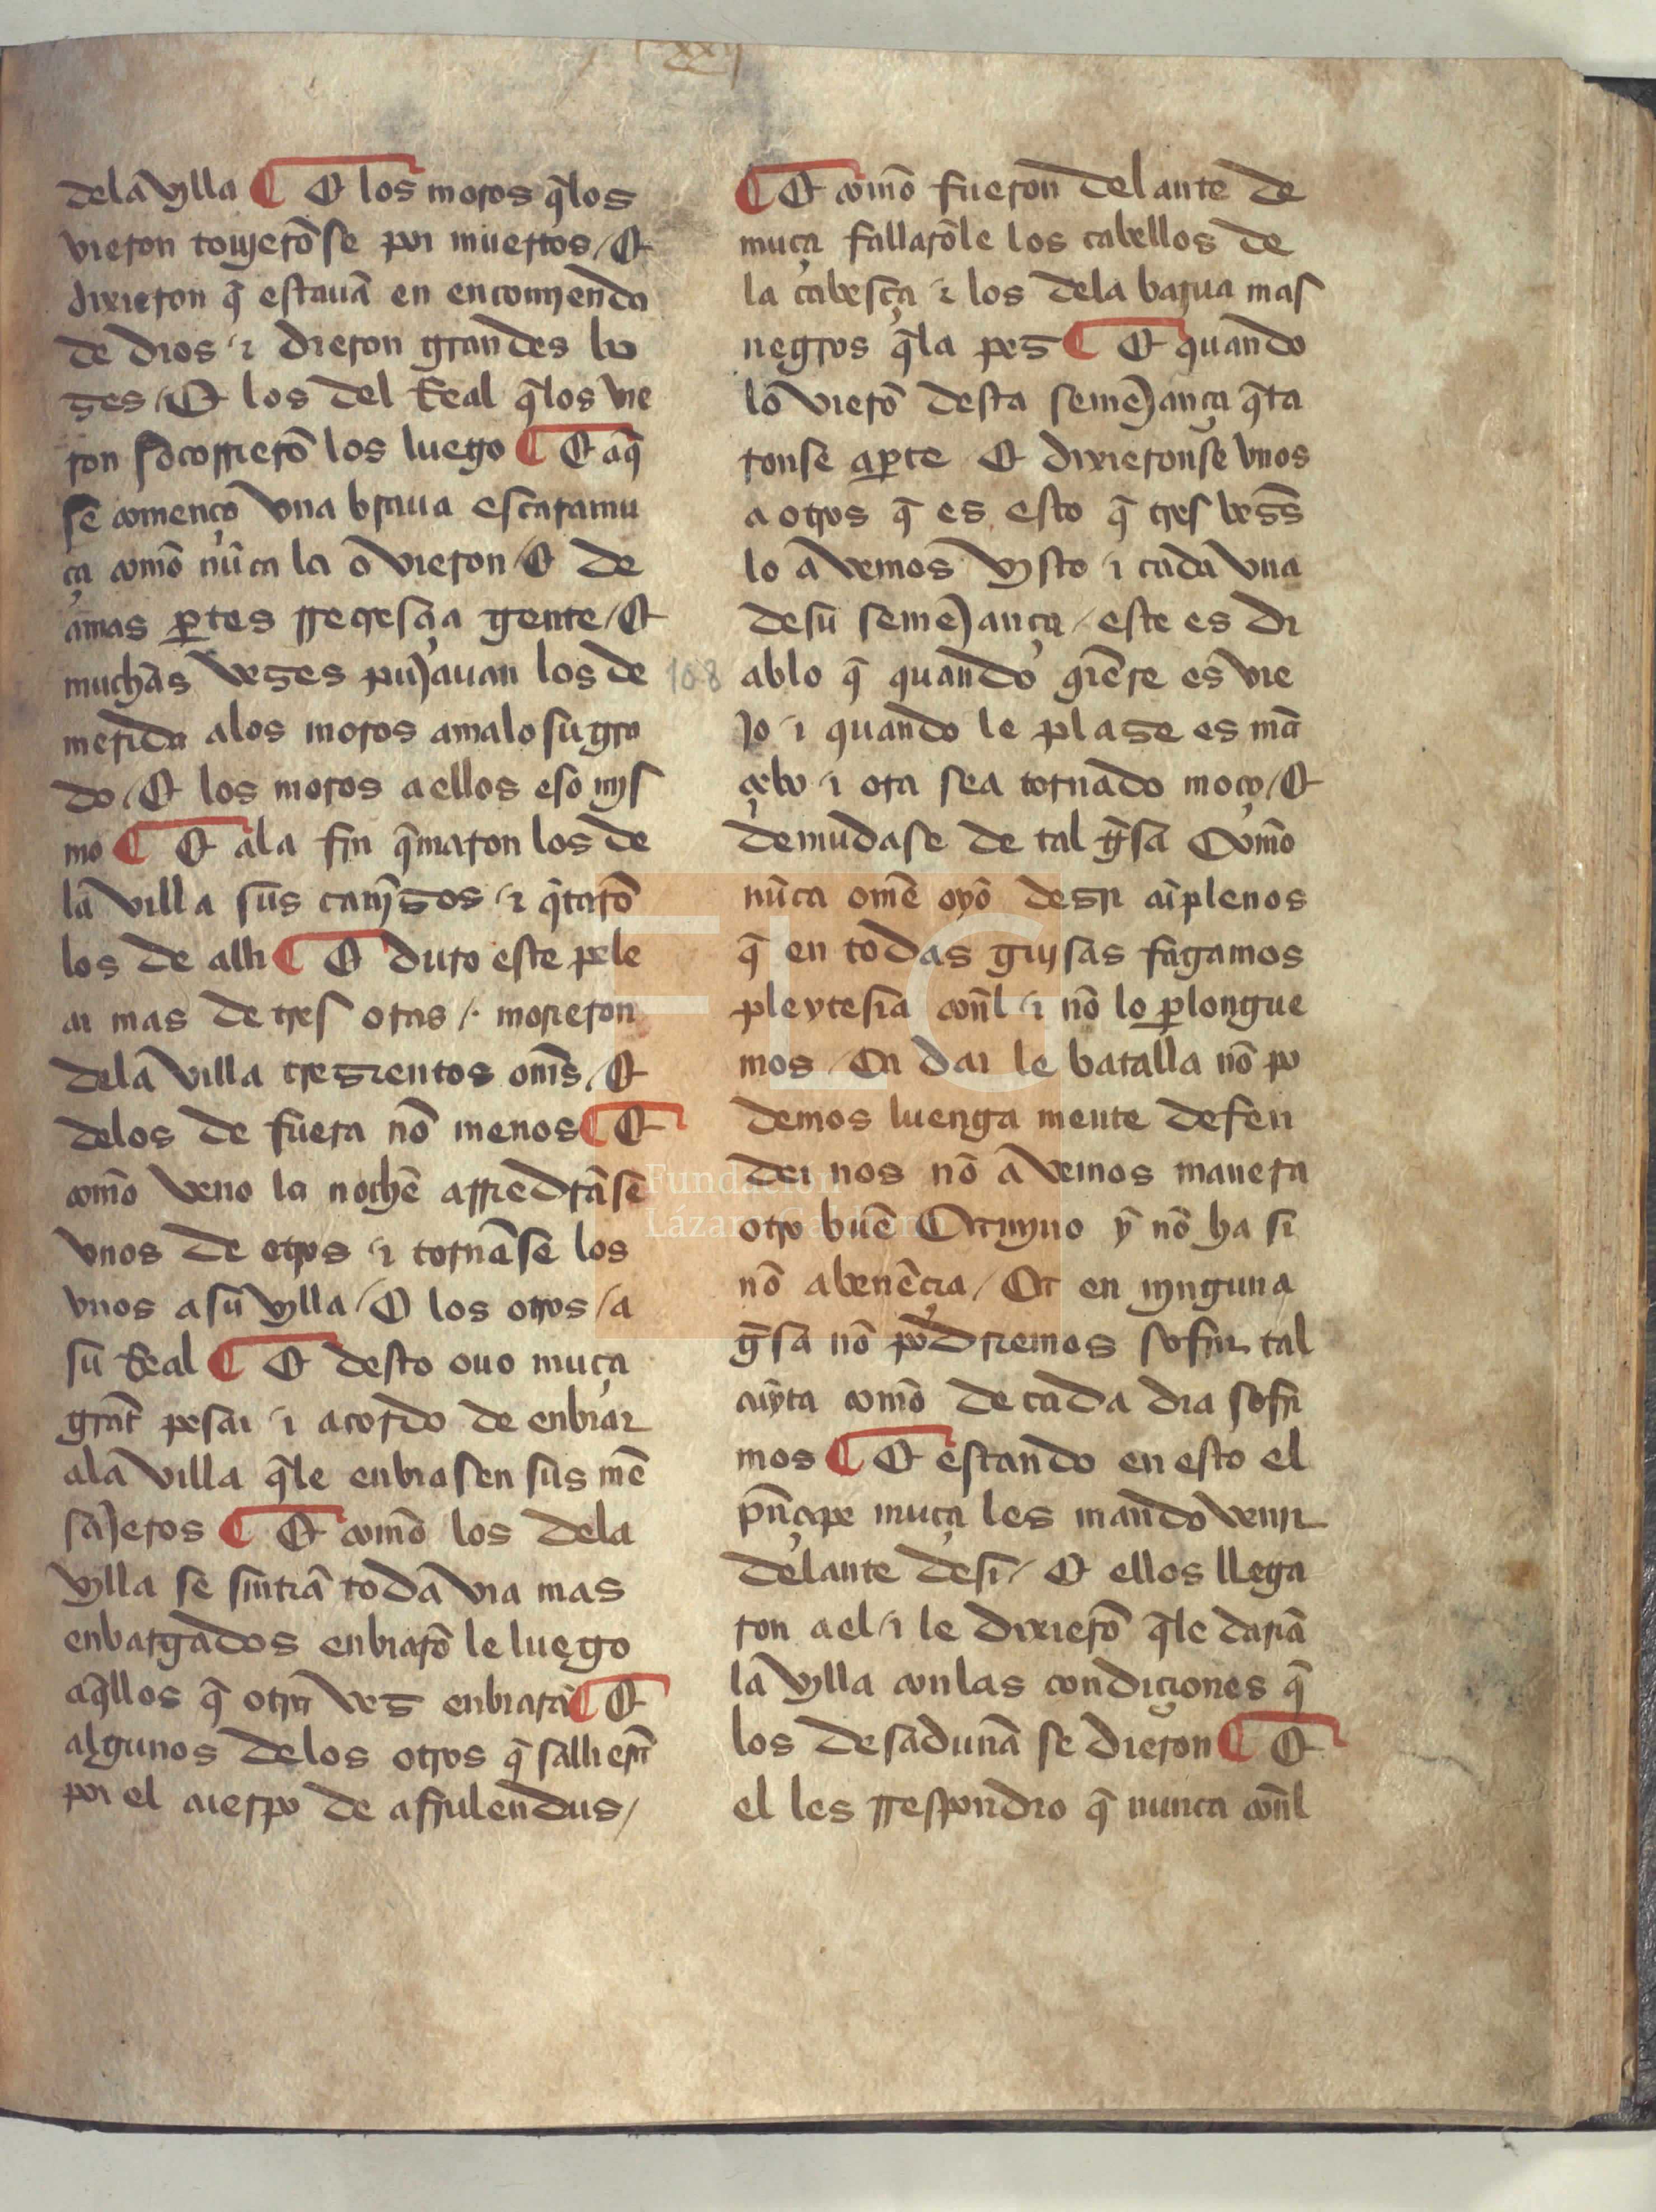 xxij
dela villa ¶ Et los moros q̃los
vieron touierõse por muertos / Et
dixieron q̃ estauã en encomienda
de dios / ⁊ dieron grandes bo
zes / Et los del Real q̃los vie
ron socorrierõ los luego ¶ Et aq̃
se començo vna braua escaramu
ça comõ nũca la o vieron / Et de
amas ꝑtes rrecresçia gente / Et
muchas vezes pujauan los de
merida alos moros amalo su gra
do / Et los moros aellos eso mis
mo ¶ Et ala fin q̃maron los de
la villa sus cañizos / ⁊ q̃tarõ
los de alli ¶ Et duro este pele
ar mas de tres oras / . morieron
dela villa trezientos omẽs / Et
delos de fuera nõ menos ¶ Et
comõ veno la nochẽ arredrãse
vnos de otros / ⁊ tornãse los
vnos a su villa / Et los otros / a
su Real ¶ Et desto ouo muça
grant pesar / ⁊ acordo de enbiar
ala villa q̃le enbiasen sus mẽ
sajeros ¶ Et comõ los dela
villa se sintiã toda via mas
enbargados enbiarõ le luego
aq̃llos q̃ otra vez enbiarã ¶ Et
algunos delos otros q̃ sallierã
por el cuerpo de afrulendus /
¶ Et comõ fueron delante de
muça fallarõle los cabellos de
la cabesça ⁊ los dela barua mas
negros q̃la pez ¶ Et quando
lo vierõ desta semejança q̃ta
ronse aꝑte Et dixieronse vnos
a otros q̃ es esto q̃ tres vezs̃
lo a vemos visto / ⁊ cada vna
desu semejança / este es di
ablo q̃ quando quiere es vie
jo / ⁊ quando le plaze es mã
çebo / ⁊ ora sea tornado moço / Et
demudase de tal gĩsa Comõ
nũca omẽ oyõ dezir cũplenos
q̃ en todas guisas fagamos
pleytesia coñl / ⁊ nõ lo ꝓlongue
mos / Ca dar le batalla nõ po
demos luenga mente defen
der nos nõ a vemos manera
otro buẽ Camino ỹ nõ ha si
nõ abenẽçia / Et en ninguna
gĩsa nõ podriemos sofrir tal
cuyta comõ de cada dia sofri
mos ¶ Et estando en esto el
prinçipe muça les mando venir
delante desi / Et ellos llega
ron a el / ⁊ le dixierõ q̃le dariã
la villa conlas condiçiones q̃
los desaduñã se dieron ¶ Et
el les rrespondio q̃ nunca coñl
108
Fundación
Lázaro Galdiano
FLG